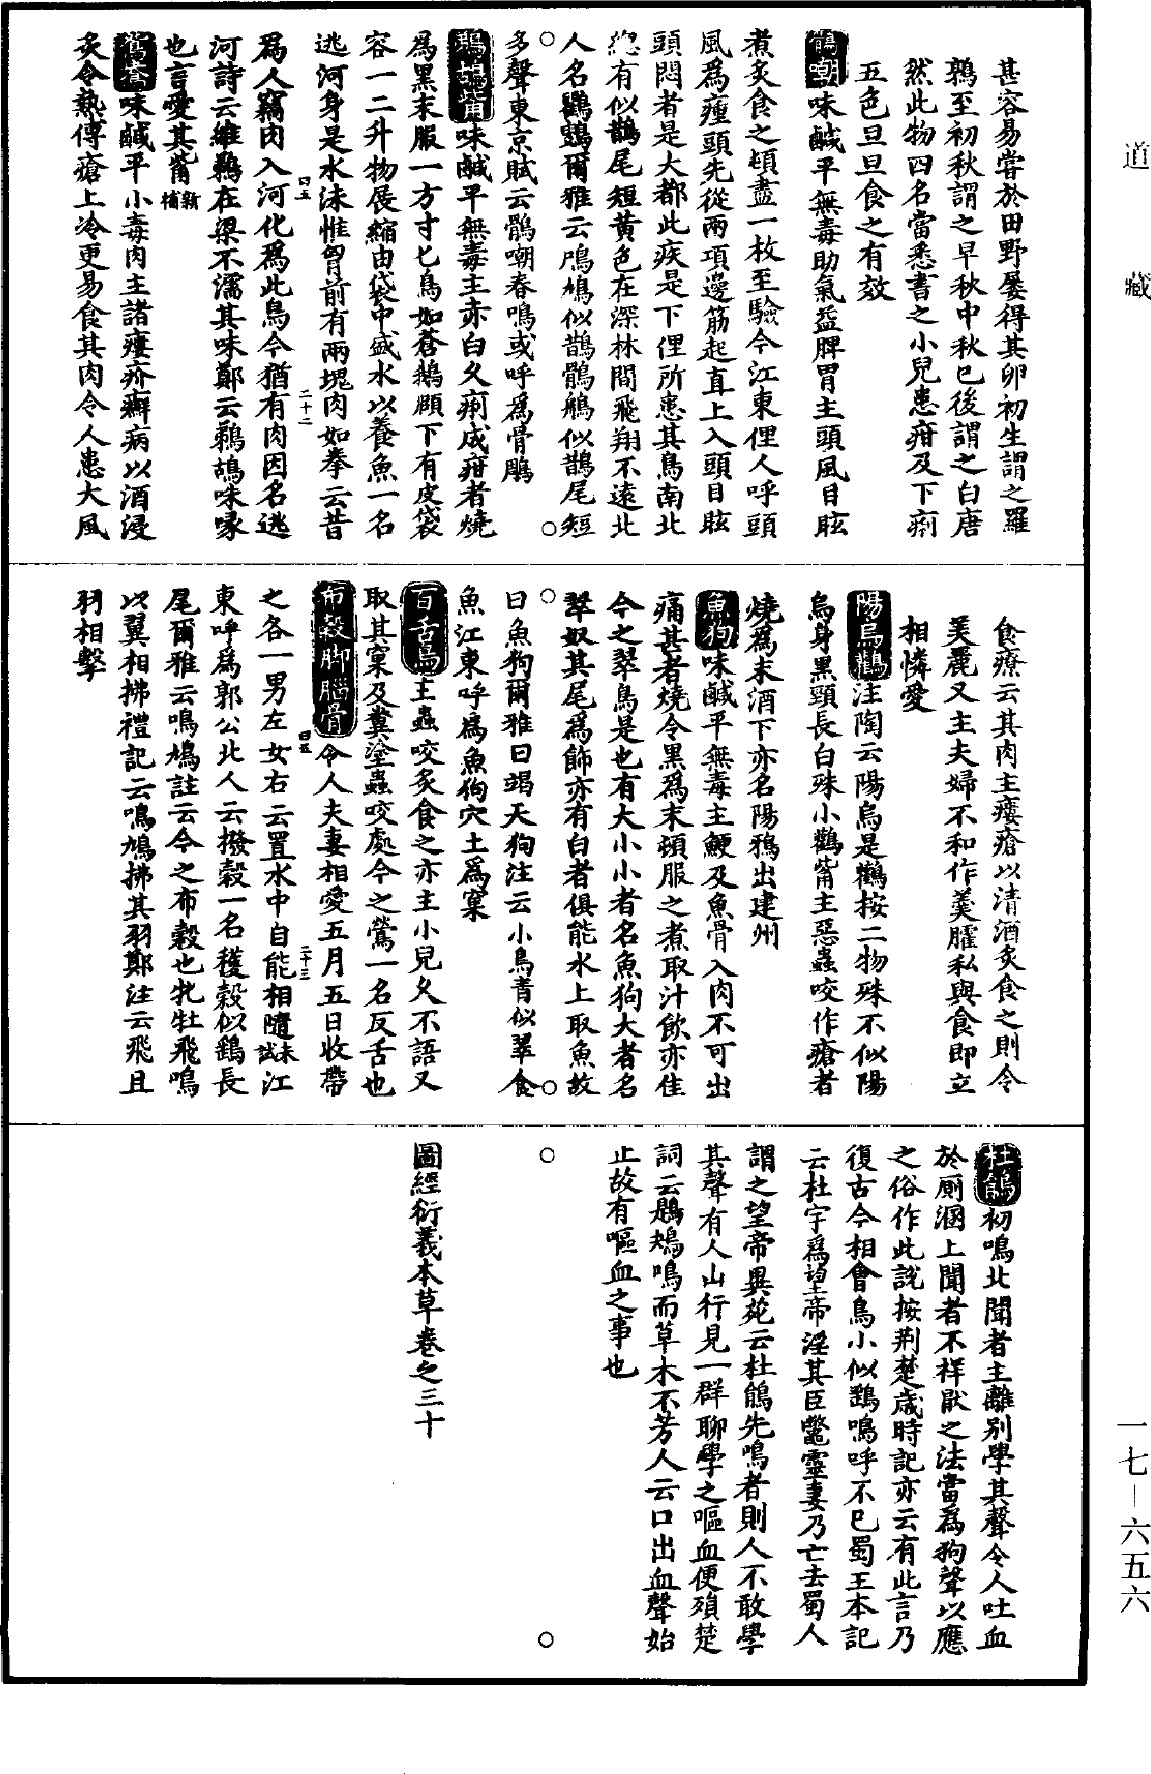 道藏
甚容易嘗於田野屢得其卵初生謂之羅
鶉至初秋謂之早秋中秋已後謂之白唐
然此物四名當悉書之小兒患疳及下痢
五色旦旦食之有效
鶻嘲味鹹平無毒助氣益脾胃主頭風目眩
煮炙食之頓盡一枚至驗今江東俚人呼頭
風為瘇頭先從兩項邊筋起直上入頭目眩
頭悶者是大都此疾是下俚所患其鳥南北
總有似鵲尾短黃色在深林間飛翔不遠北
人名鸜鵒爾雅云鳲鳩似鵲鶻鵃似鵲尾短
多聲東京賦云鶻嘲春鳴或呼為骨鵰
鵜鴣觜味鹹平無毒主赤白久痢成疳者燒
為黑末服一方寸匕鳥如蒼鵝頤下有皮袋
容一二升物展縮由袋中盛水以養魚一名
逃河身是水沫惟胷前有兩塊肉如拳云昔
為人竊肉入河化為此鳥今猶有肉因名逃
河詩云維鵜在梁不濡其味鄭云鵜鴣咮喙
也言愛其觜新補
鴛鴦味鹹平小毒肉主諸瘻疥癬病以酒浸
炙令熱傅瘡上冷更易食其肉令人患大風
四五
二十二
食療云其肉主瘻瘡以清酒炙食之則令
美麗又主夫婦不和作羮臛私與食即立
相憐愛
陽烏鸛注陶云陽烏是鸛按二物殊不似陽
烏身黑頸長白殊小鸛觜主惡蟲咬作瘡者
燒為末酒下亦名陽鴉出建州
魚狗味鹹平無毒主鯁及魚骨入肉不可出
痛甚者燒令黑為末頓服之煮取汁飲亦佳
今之翠鳥是也有大小小者名魚狗大者名
翠奴其尾為飾亦有白者俱能水上取魚故
曰魚狗爾雅曰竭天狗注云小鳥青似翠食
魚江東呼為魚狗穴土為窠
百舌鳥主蟲咬炙食之亦主小兒久不語又
取其窠及糞塗蟲咬處今之鶯一名反舌也
布穀脚腦骨令人夫妻相愛五月五日收帶
之各一男左女右云置水中自能相隨未試江
東呼為郭公北人云撥穀一名穫穀似鷂長
尾爾雅云鳴鳩註云今之布穀也牝牡飛鳴
以翼相拂禮記云鳴鳩拂其羽鄭注云飛且
羽相擊
四五
二十三
杜鵑初鳴北聞者主離別學其聲令人吐血
於厠溷上聞者不祥厭之法當為狗聲以應
之俗作此說按荆楚歲時記亦云有此言乃
復古今相會鳥小似鷂鳴呼不已蜀王本記
云杜宇為望帝淫其臣鼈靈妻乃亡去蜀人
謂之望帝異苑云杜鵑先鳴者則人不敢學
其聲有人山行見一群聊學之嘔血便殞楚
詞云鶗鴂鳴而草木不芳人云口出血聲始
止故有嘔血之事也
圖經衍義本草卷之三十
一七—六五六